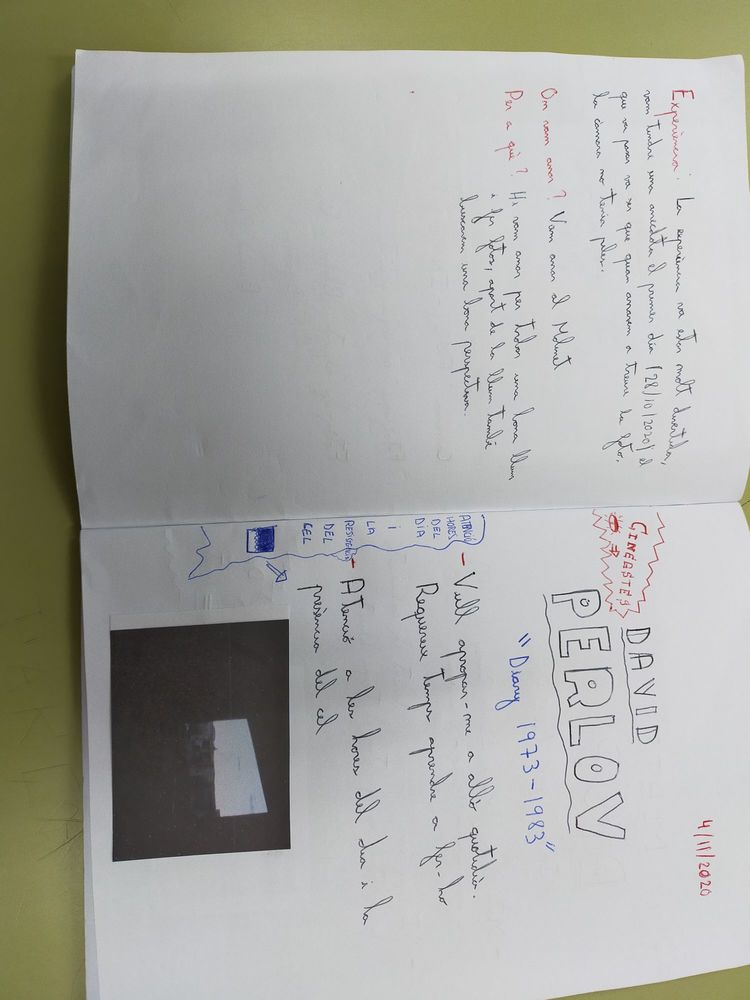 Experiència: La experiència va estar molt divertida,
vam tindre una anecdota el primer dia (28/10/2020) el
que va pasar va ser que quan anavem a treure la foto,
la càmara no tenia piles.
On vam anar? Vam anar al Molinet
Per a què? Hi vam anar per trobar una bona llum
i fer fotos, apart de la llum també
buscavem una bona perspectiva.
4/11/2020
CINEASTES
DAVID
PERLOV
"Diary 1973-1983"
- Vull apropar-me a allò quotidià.
Requereix temps aprendre a fer-ho
- Atenció a les hores del dia i la
presència del cel
ATENCIÓ
HORES
DEL
DIA
i
LA
DEL
CEL